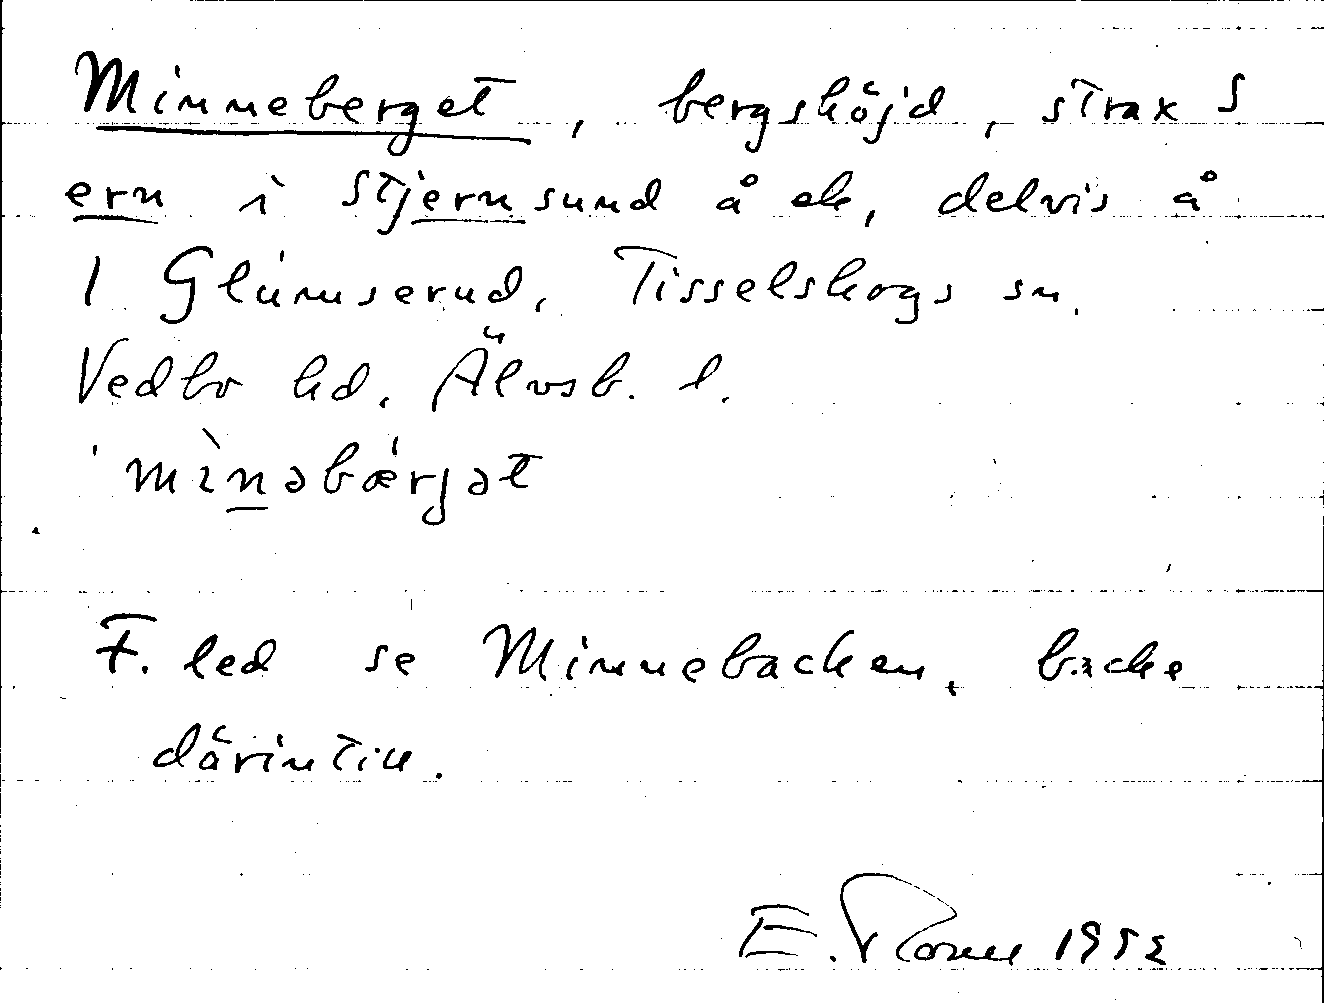 Minneberget, bergshöjd, strax S
ern i Stjernsund å ek, delvis å
1 Glumserud, Tisselskogs sn.
Vedbo hd, Älvsb. l.
mìnəbǽrjət
F. led se Minnebacken, backe
därintill.
E. 1952